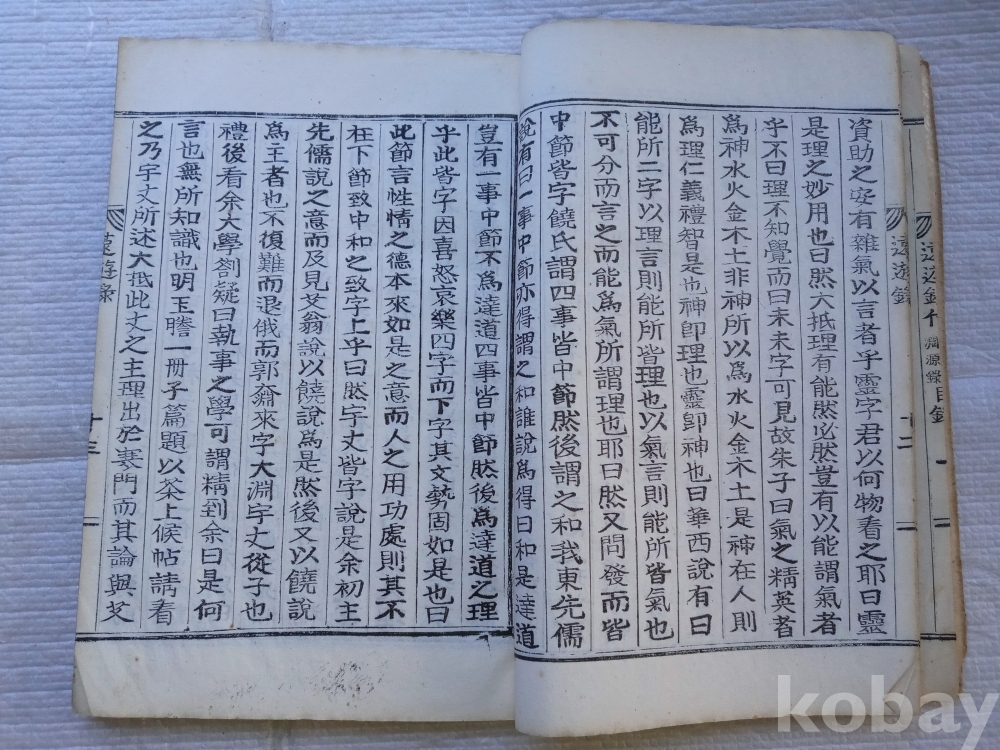 資助之安有雜氣以言者乎靈字君以何物看之耶曰靈
是理之妙用也曰然大抵理有能然必然豈有以能謂氣者
乎不曰理不知覺而曰未未字可見故朱子曰氣之精英者
爲神水火金木土非神所以爲水火金木土是神在人則
爲理仁義禮智是也神卽理也靈卽神也曰華西說有曰
能所二字以理言則能所皆理也以氣言則能所皆氣也
不可分而言之而能爲氣所謂理也耶曰然又問發而皆
中節皆字饒氏謂四事皆中節然後謂之和我東先儒
說有曰一事中節亦得謂之和誰說爲得曰和是達道
豈有一事中節不爲達道四事皆中節然後爲達道之理
乎此皆字因喜怒哀樂四字而下字其文勢固如是也曰
此節言性情之德本來如是之意而人之用功處則其不
在下節致中和之致字上乎曰然字丈皆字說是余初主
先儒說之意而及見艾翁說以饒說爲是然後又以饒說
爲主者也不復難而退俄而郭鼐來字大淵字丈從子也
禮後看余大學劄疑曰執事之學可謂精到余曰是何
言也無所知識也明玉譫一冊子篇題以茶上候帖請看
之乃字丈所述大抵此文之主理出於寒門而其論與艾
遠遊錄
十三
遠遊錄
十二
遠遊錄
淵源錄目錄
一
kobay